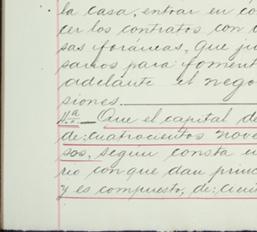 la casa, entrar en co
cer los contratos con
sas foráneas, que ju
sarios para foment
adelante el nego
siones.
4.a — Que el capital de
de: cuatrocientos nove
sos, segun consta
rio con que dan princ
y es compuesto, de: cien